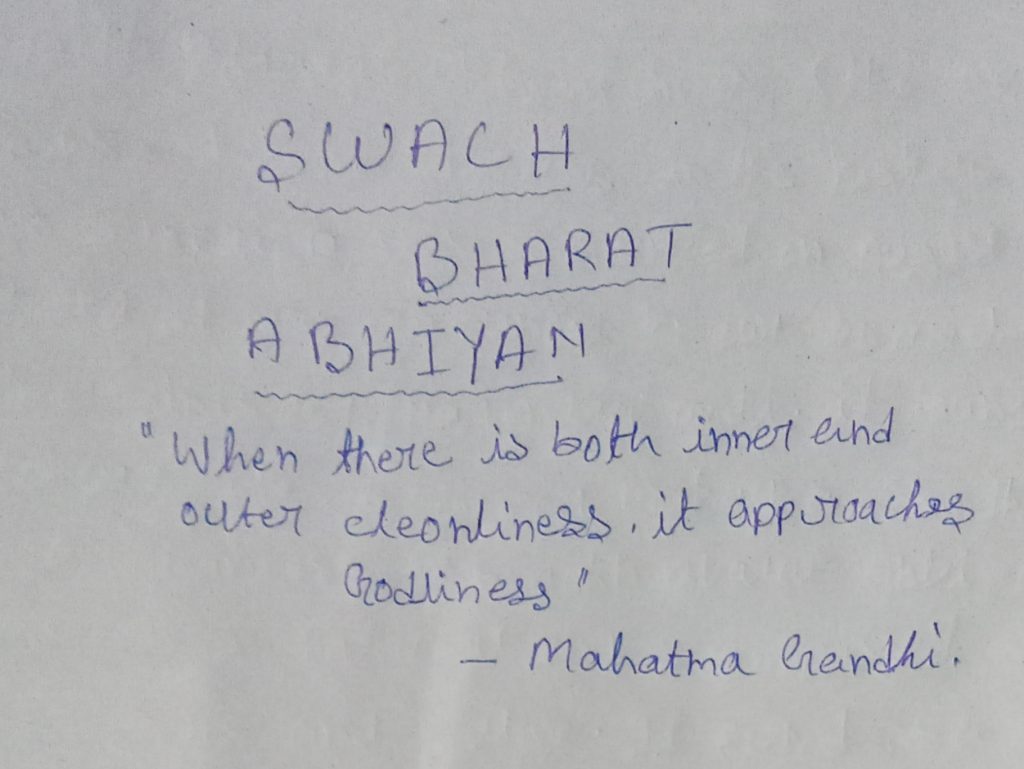 SWACH
BHARAT
ABHIYAN
"When there is both inner and
outer cleanliness. it approaches
Godliness"
- Mahatma Gandhi.